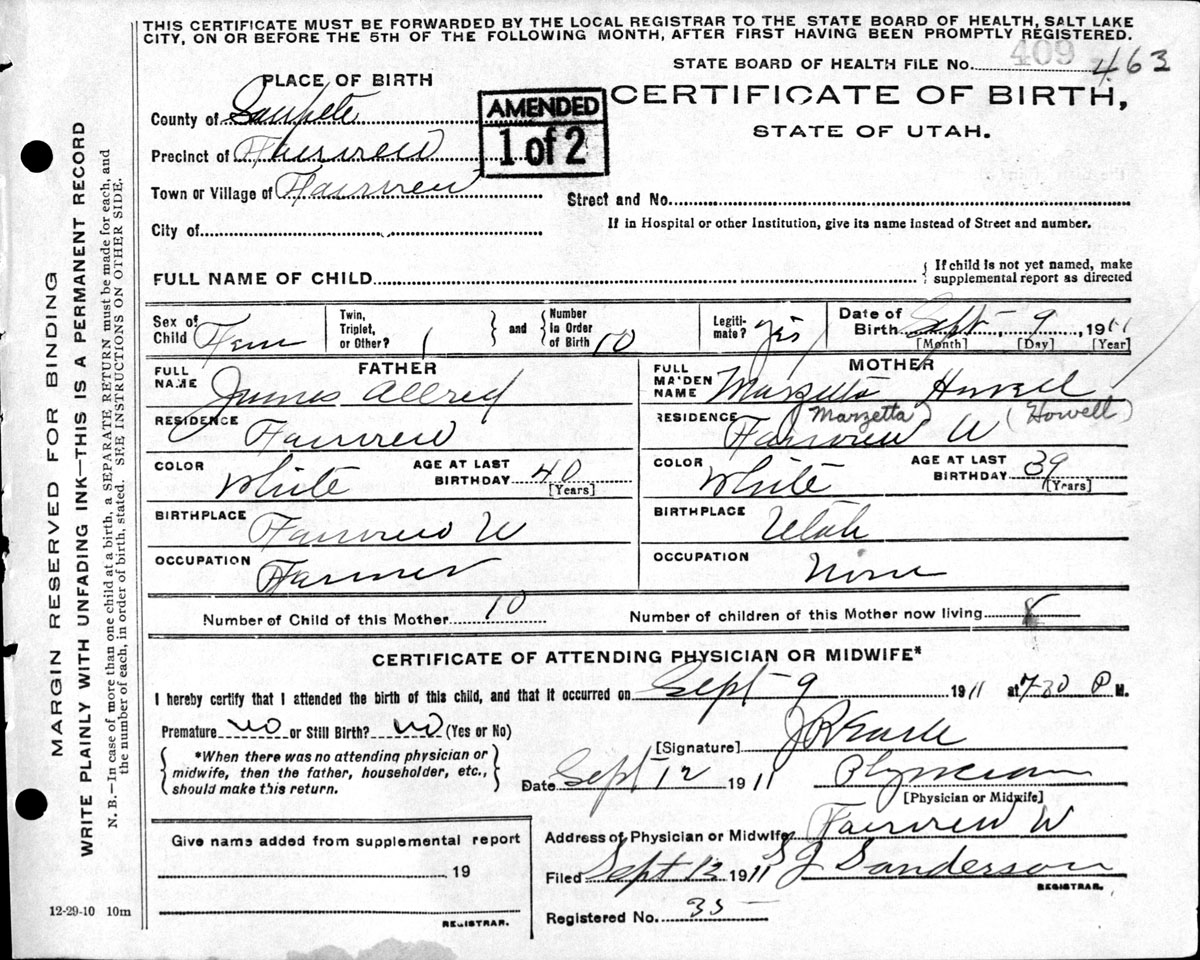 THIS CERTIFICATE MUST BE FORWARDED BY THE LOCAL REGISTRAR TO THE STATE BOARD OF HEALTH, SALT LAKE
CITY, ON OR BEFORE THE 5TH OF THE FOLLOWING MONTH, AFTER FIRST HAVING BEEN PROMPTLY REGISTERED.
409
STATE BOARD OF HEALTH FILE No. 463
PLACE OF BIRTH
CERTIFICATE OF BIRTH,
STATE OF UTAH.
AMENDED
1 of 2
County of Sanpete
Precinct of Fairview
Town or Village of Fairview
Street and No.
If in Hospital or other Institution, give its name instead of Street and number.
City of
FULL NAME OF CHILD
{ If child is not yet named, make
supplemental report as directed
Sex of Child Fem
Twin, Triplet, or Other? 1
and { Number In Order of Birth 10
Legiti-mate? yes
Date of Birth Sept - 9, 1911
[Month] [Day] [Year]
FATHER
FULL NAME James Allred
RESIDENCE Fairview
COLOR White
AGE AT LAST BIRTHDAY 40
[Years]
BIRTHPLACE Fairview U
OCCUPATION Farmer
MOTHER
FULL MAIDEN NAME Marzetta Howell
(Marzetta) (Howell)
RESIDENCE Fairview U
COLOR White
AGE AT LAST BIRTHDAY 39
[Years]
BIRTHPLACE Utah
OCCUPATION None
Number of Child of this Mother 10
Number of children of this Mother now living 8
CERTIFICATE OF ATTENDING PHYSICIAN OR MIDWIFE*
I hereby certify that I attended the birth of this child, and that it occurred on Sept - 9 1911 at 7-30 P M.
Premature no or Still Birth? no (Yes or No)
*When there was no attending physician or
midwife, then the father, householder, etc.,
should make this return.
[Signature]
Date Sept 12 1911 Physician
[Physician or Midwife]
Address of Physician or Midwife Fairview U
Filed Sept 12 1911 S J Sanderson
REGISTRAR.
Registered No. 35
Give name added from supplemental report
19
REGISTRAR.
12-29-10 10m
MARGIN RESERVED FOR BINDING
WRITE PLAINLY WITH UNFADING INK—THIS IS A PERMANENT RECORD
N. B.—In case of more than one child at a birth, a SEPARATE RETURN must be made for each, and
the number of each, in order of birth, stated. SEE INSTRUCTIONS ON OTHER SIDE.